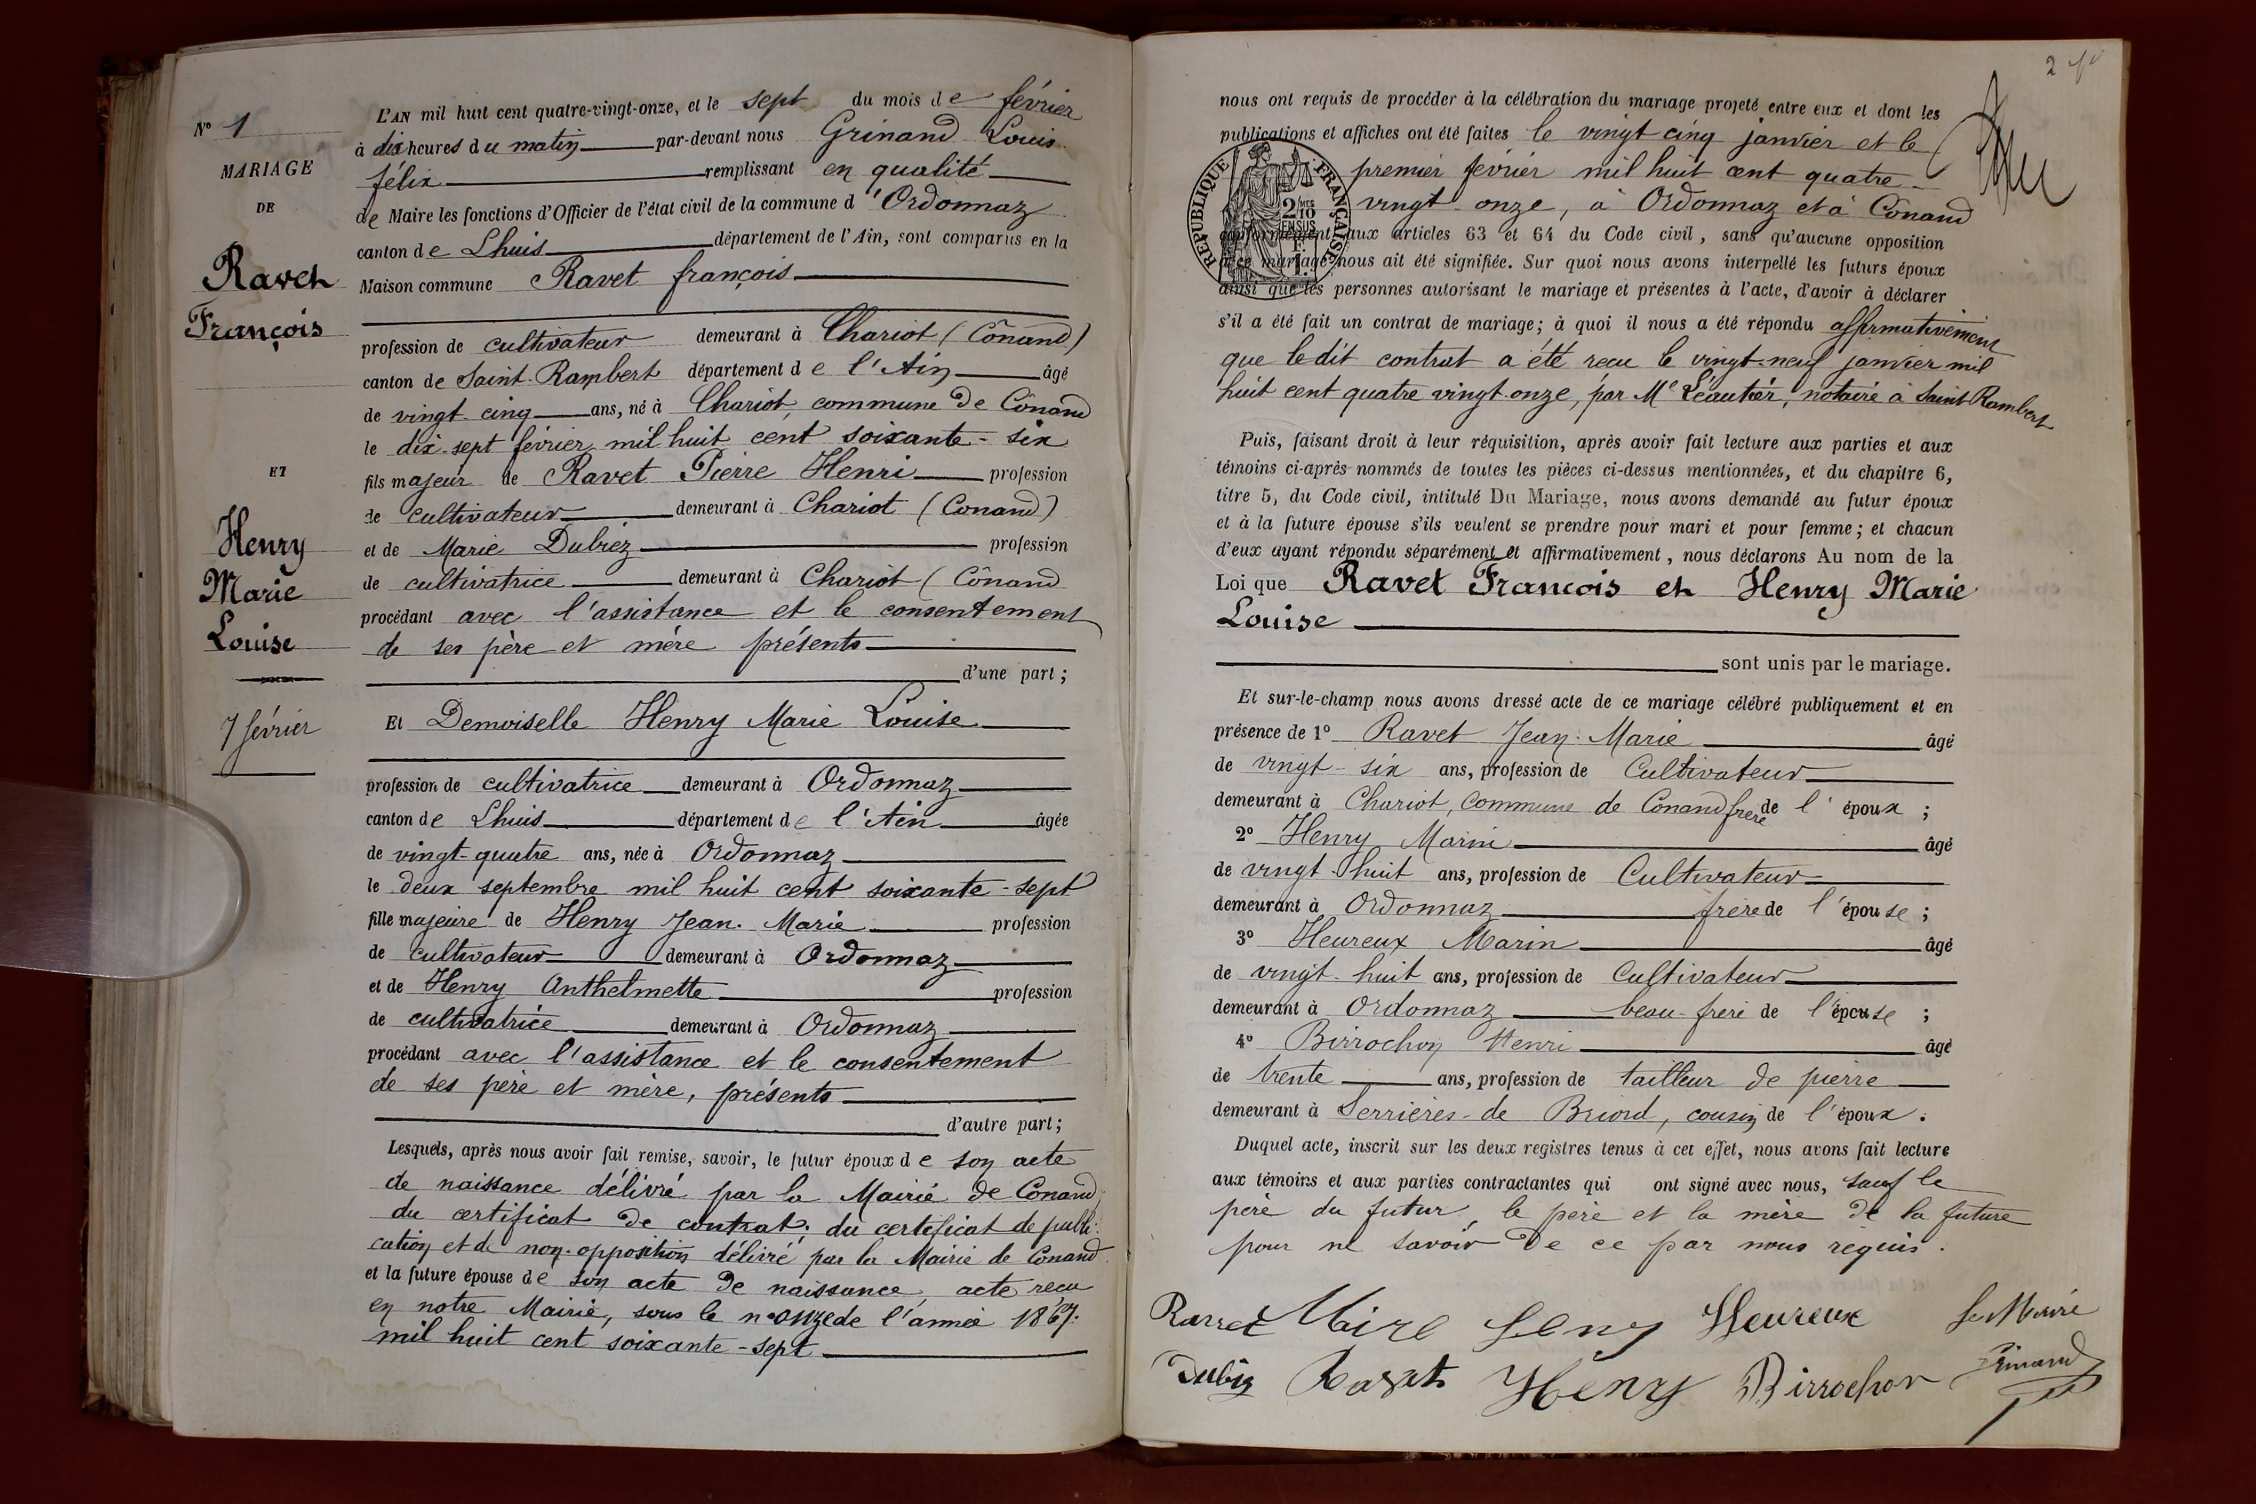 N° 1
MARIAGE
DE
Ravet
François
ET
Henry
Marie
Louise
7 février
L'AN mil huit cent quatre-vingt-onze, et le sept du mois de février
à dix heures du matin par-devant nous Grinand Louis
félix remplissant en qualité
de Maire les fonctions d'Officier de l'état civil de la commune d'Ordonnaz
canton de Lhuis département de l'Ain, sont comparus en la
Maison commune Ravet françois
profession de cultivateur demeurant à Chariot (Cônand)
canton de Saint-Rambert département de l'Ain âgé
de vingt-cinq ans, né à Chariot, commune de Cônand
le dix-sept février mil huit cent soixante-six
fils majeur de Ravet Pierre Henri profession
de cultivateur demeurant à Chariot (Conand)
et de Marie Dubiez profession
de cultivatrice demeurant à Chariot (Cônand
procédant avec l'assistance et le consentement
de ses père et mère présents
d'une part;
Et Demoiselle Henry Marie Louise
profession de cultivatrice demeurant à Ordonnaz
canton de Lhuis département de l'Ain âgée
de vingt-quatre ans, née à Ordonnaz
le deux septembre mil huit cent soixante-sept
fille majeure de Henry Jean-Marie profession
de cultivateur demeurant à Ordonnaz
et de Henry Anthelmette profession
de cultivatrice demeurant à Ordonnaz
procédant avec l'assistance et le consentement
de ses père et mère, présents
d'autre part;
Lesquels, après nous avoir fait remise, savoir, le futur époux de son acte
de naissance délivré par la Mairie de Conand,
du certificat de contrat; du certificat de publi-
cation et de non-opposition délivré par la Mairie de Conand
et la future épouse de son acte de naissance, acte reçu
en notre Mairie, sous le n° onze de l'année 1867.
mil huit cent soixante-sept
2
nous ont requis de procéder à la célébration du mariage projeté entre eux et dont les
publications et affiches ont été faites le vingt cinq janvier et le
premier février mil huit cent quatre-
vingt-onze, à Ordonnaz et à Cônand
RÉPUBLIQUE FRANÇAISE
2/10 EN SUS
conformément aux articles 63 et 64 du Code civil, sans qu'aucune opposition
à ce mariage nous ait été signifiée. Sur quoi nous avons interpellé les futurs époux
ainsi que les personnes autorisant le mariage et présentes à l'acte, d'avoir à déclarer
s'il a été fait un contrat de mariage; à quoi il nous a été répondu affirmativement
que le dit contrat a été reçu le vingt-neuf janvier mil
huit cent quatre vingt-onze, par Me Léautier, notaire à Saint Rambert
Puis, faisant droit à leur réquisition, après avoir fait lecture aux parties et aux
témoins ci-après nommés de toutes les pièces ci-dessus mentionnées, et du chapitre 6,
titre 5, du Code civil, intitulé Du Mariage, nous avons demandé au futur époux
et à la future épouse s'ils veulent se prendre pour mari et pour femme; et chacun
d'eux ayant répondu séparément et affirmativement, nous déclarons Au nom de la
Loi que Ravet François et Henry Marie
Louise
sont unis par le mariage.
Et sur-le-champ nous avons dressé acte de ce mariage célébré publiquement et en
présence de 1° Ravet Jean-Marie âgé
de vingt-six ans, profession de Cultivateur
demeurant à Chariot, Commune de Conand frère de l'époux;
2° Henry Marin âgé
de vingt-huit ans, profession de Cultivateur
demeurant à Ordonnaz frère de l'épouse;
3° Heureux Marin âgé
de vingt-huit ans, profession de Cultivateur
demeurant à Ordonnaz beau-frère de l'épouse;
4° Birrochon Henri âgé
de trente ans, profession de tailleur de pierre
demeurant à Serrières-de Briord, cousin de l'époux.
Duquel acte, inscrit sur les deux registres tenus à cet effet, nous avons fait lecture
aux témoins et aux parties contractantes qui ont signé avec nous, sauf le
père du futur, le père et la mère de la future
pour ne savoir de ce par nous requis.
Henry Heureux Le Maire
Dubiz Ravet Henry Birrochon Grinand